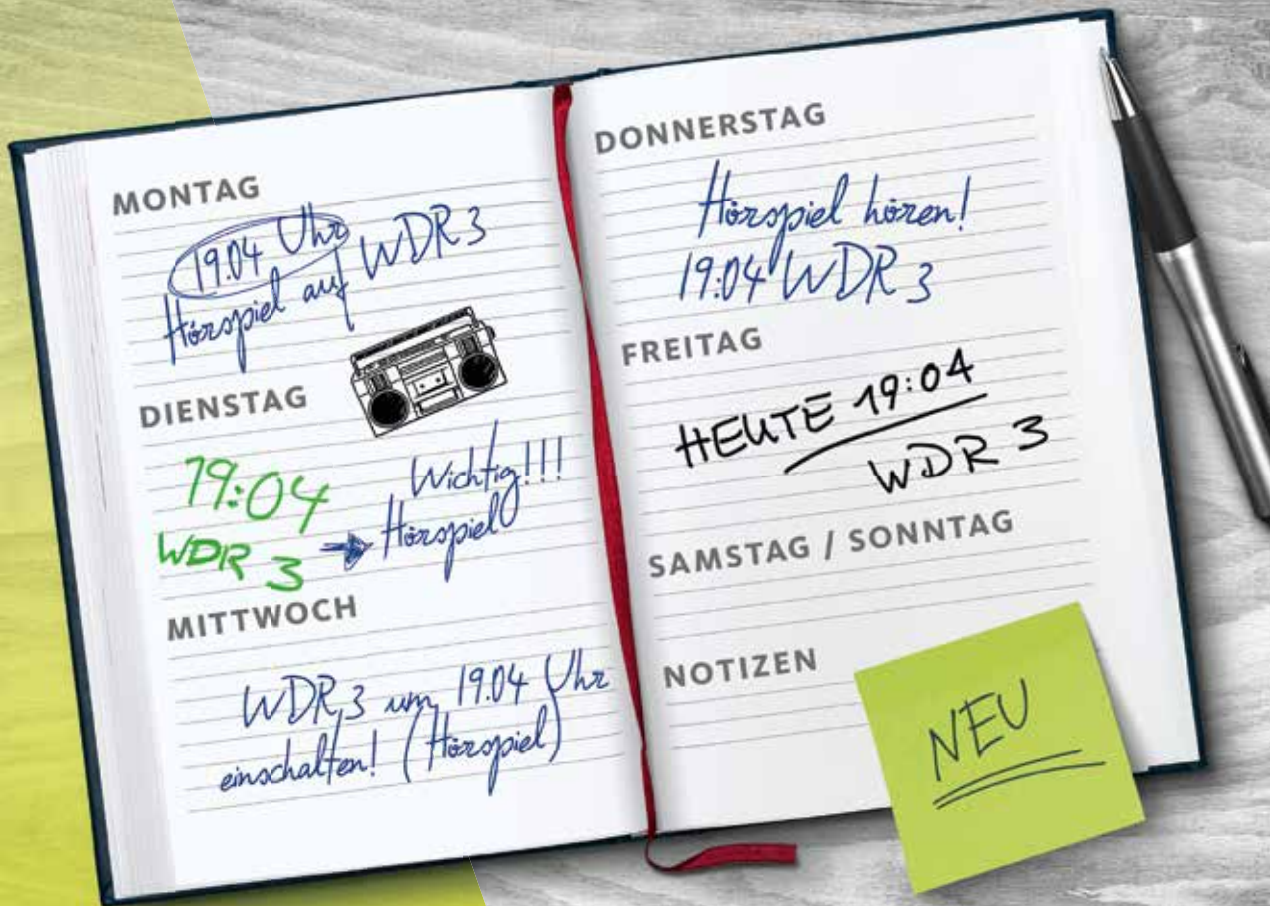 MONTAG
19.04 Uhr
Hörspiel auf WDR 3
DIENSTAG
19:04
WDR 3
Wichtig!!!
Hörspiel
MITTWOCH
WDR 3 um 19.04 Uhr
einschalten! (Hörspiel)
DONNERSTAG
Hörspiel hören!
19:04 WDR 3
FREITAG
HEUTE 19:04
WDR 3
SAMSTAG / SONNTAG
NOTIZEN
NEU